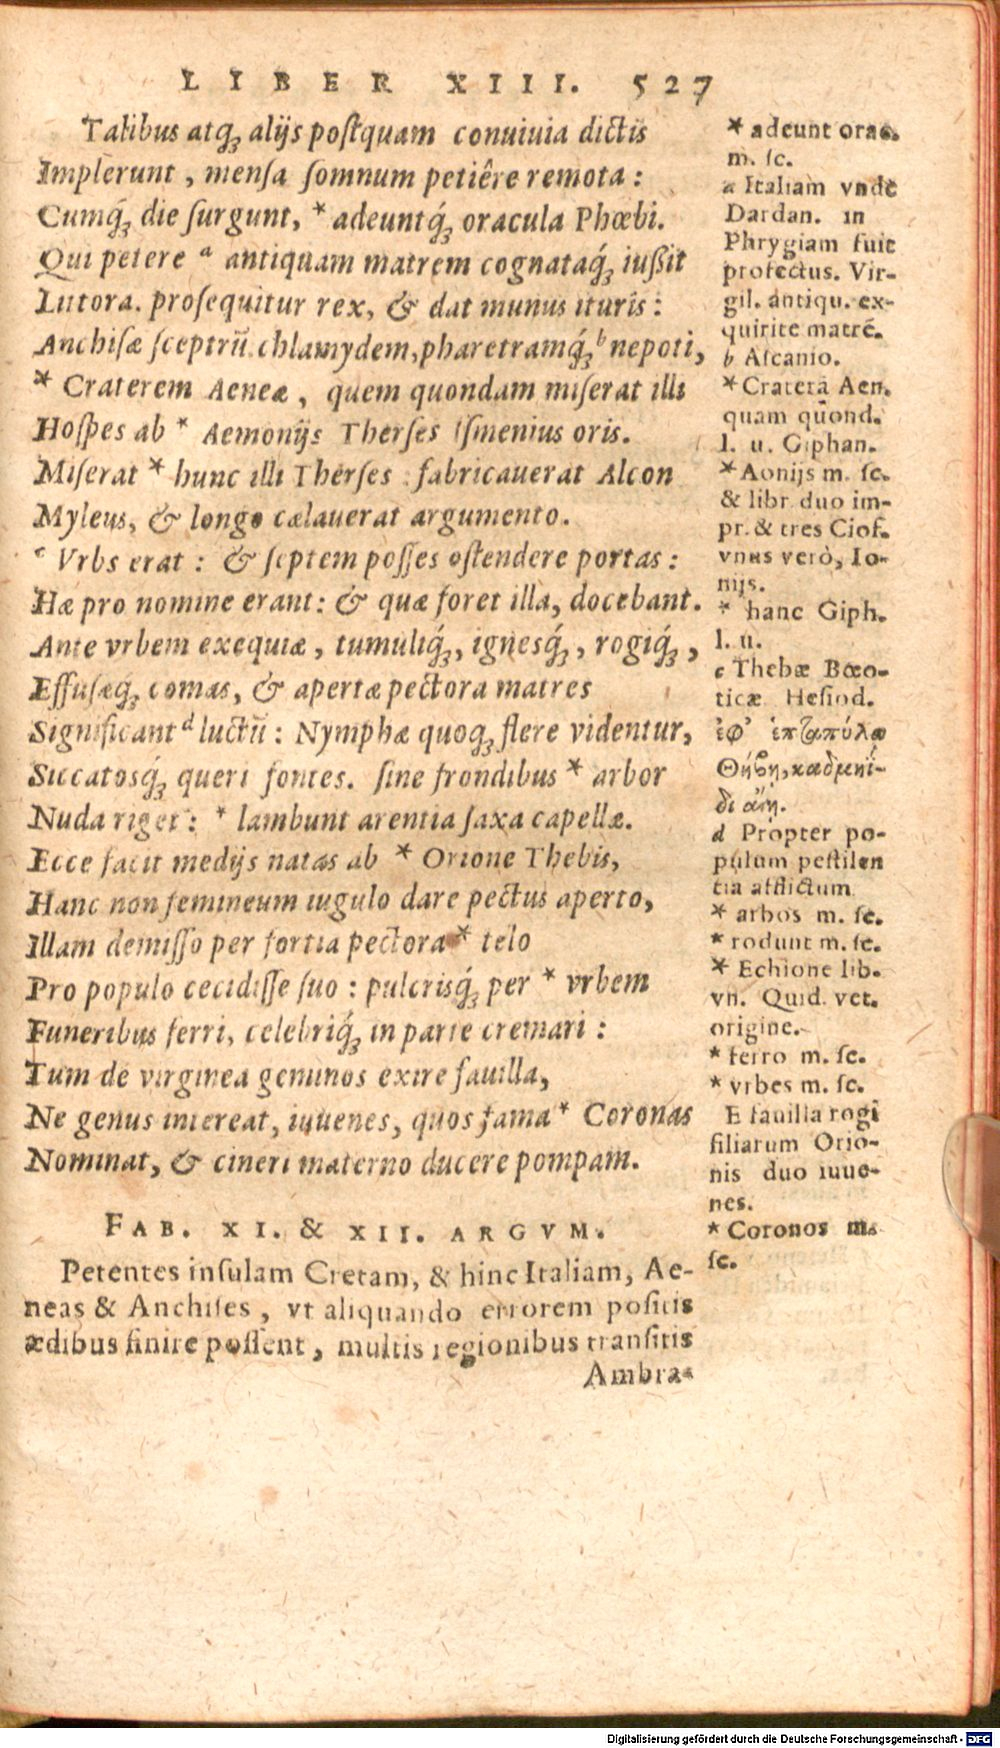 LIBER XIII. 527
Talibus atq́; alijs poſtquam conuiuia dictis
Implerunt, menſa ſomnum petiêre remota:
Cumq́; die ſurgunt, * adeuntq́; oracula Phœbi.
Qui petere ᵃ antiquam matrem cognataq́; iußit
Littora. proſequitur rex, & dat munus ituris:
Anchiſæ ſceptrũ. chlamydem, pharetramq́; ᵇ nepoti,
* Craterem Aeneæ, quem quondam miſerat illi
Hoſpes ab * Aemonijs Therſes Iſmenius oris.
Miſerat * hunc illi Therſes: fabricauerat Alcon
Myleus, & longo cælauerat argumento.
ᶜ Vrbs erat: & ſeptem poſſes oſtendere portas:
Hæ pro nomine erant: & quæ foret illa, docebant.
Ante vrbem exequiæ, tumuliq́;, ignesq́;, rogiq́;,
Effuſæq́; comas, & apertæ pectora matres
Significant ᵈ luctũ: Nymphæ quoq; flere videntur,
Siccatosq́; queri fontes. ſine frondibus * arbor
Nuda riget: * lambunt arentia ſaxa capellæ.
Ecce facit medijs natas ab * Orione Thebis,
Hanc non femineum iugulo dare pectus aperto,
Illam demiſſo per fortia pectora * telo
Pro populo cecidiſſe ſuo: pulcrisq́; per * vrbem
Funeribus ferri, celebriq́; in parte cremari:
Tum de virginea geminos exire fauilla,
Ne genus intereat, iuuenes, quos fama * Coronas
Nominat, & cineri materno ducere pompam.
FAB. XI. & XII. ARGVM.
Petentes inſulam Cretam, & hinc Italiam, Ae-
neas & Anchiſes, vt aliquando errorem poſitis
ædibus finire poſſent, multis regionibus tranſitis
Ambra-
* adeunt orac.
m. ſc.
a Italiam vnde
Dardan. in
Phrygiam fuit
profectus. Vir-
gil. antiqu. ex-
quirite matrẽ.
b Aſcanio.
* Craterã Aen.
quam quond.
l. u. Giphan.
* Aonijs m. ſc.
& libr. duo im-
pr. & tres Ciof.
vnus verò, Io-
nijs.
* hanc Giph.
l. u.
c Thebæ Bœo-
ticæ Heſiod.
ἐφ' ἑπταπύλῳ
Θήβῃ, καδμηΐ-
δι αἴῃ.
d Propter po-
pulum peſtilen
tia afflictum
* arbos m. ſc.
* rodunt m. ſc.
* Echione lib.
vn. Quid. vet.
origine.
* ferro m. ſc.
* vrbes m. ſc.
E fauilla rogi
filiarum Orio-
nis duo iuue-
nes.
* Coronos m.
ſc.
Digitalisierung gefördert durch die Deutsche Forschungsgemeinschaft - DFG